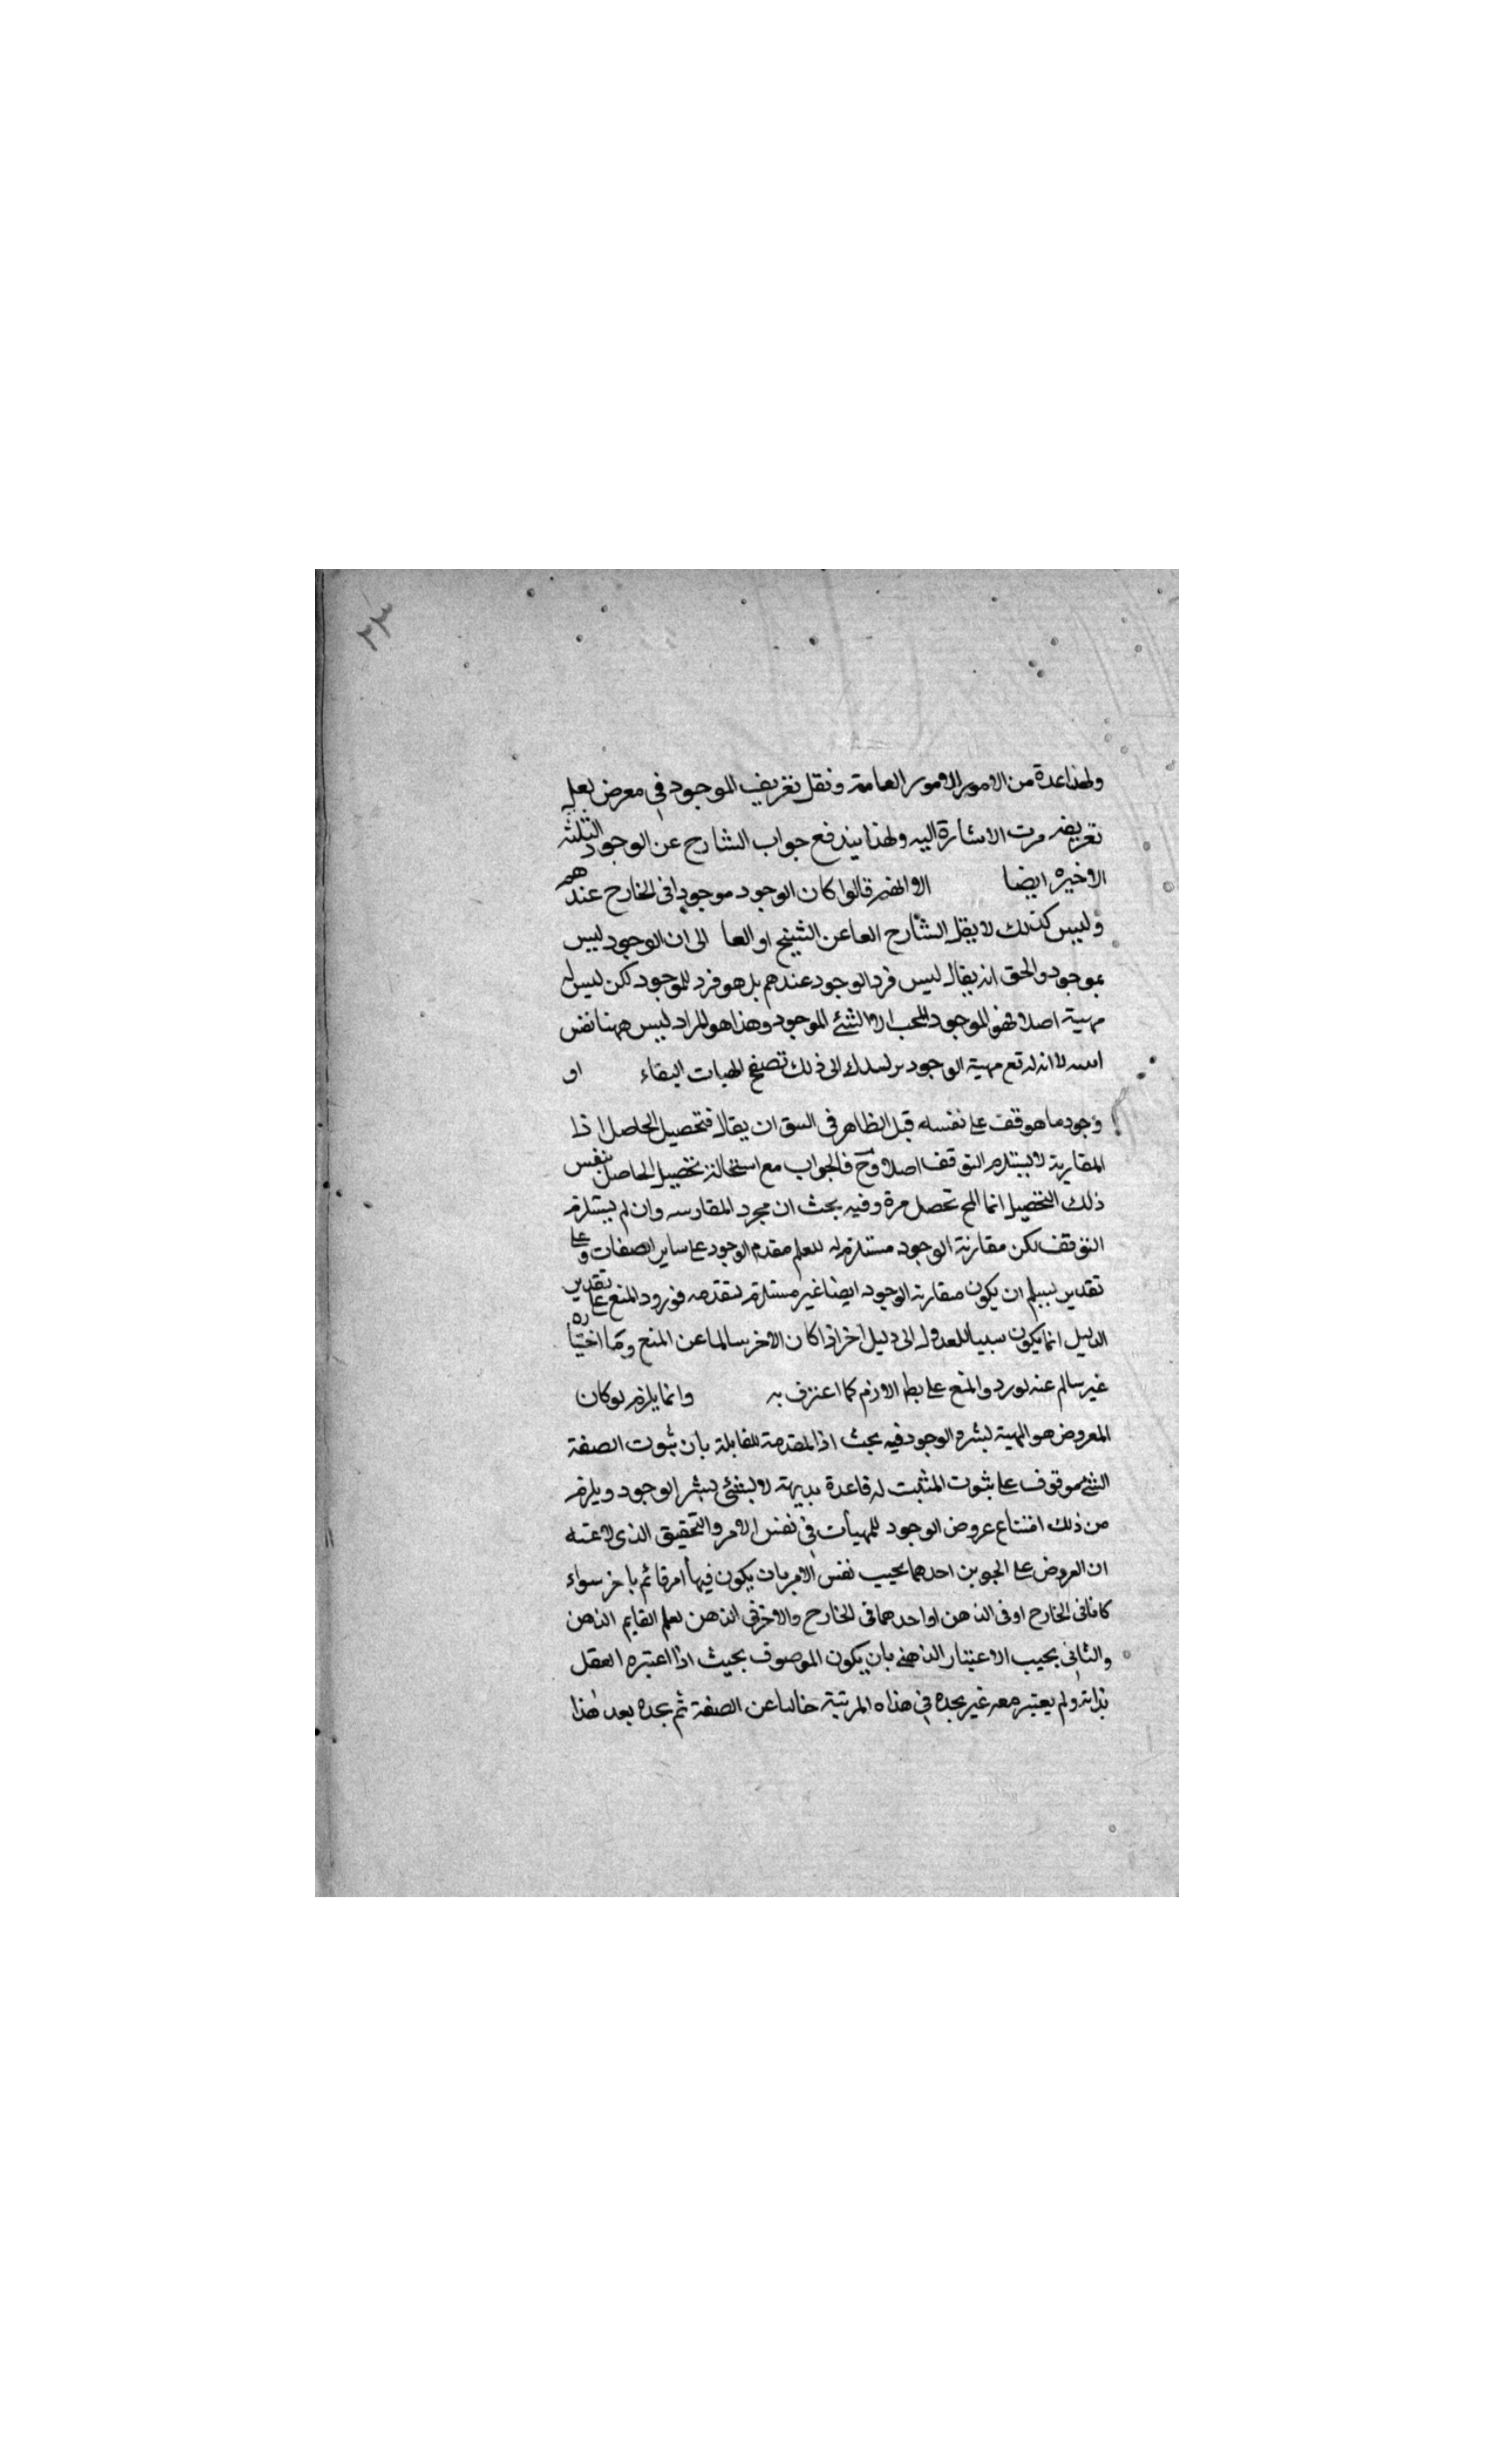 ولهذا عدة من الامور الامور العامة ونقل تعريف الموجود في معرض نعل
تعريضه مرت الاشارة اليه ولهذا يندفع جواب الشارح عن الوجود الثلثة
الاخيره ايضا الا انهم قالوا كان الوجود موجودا فى الخارج عندهم
وليس كذلك لا يقل الشارح العا عن الشيخ او العا الى ان الوجود ليس
بموجود والحق انه يقال ليس فرد الوجود عندهم بل هو فرد للموجود لكن ليس له
مهية اصلا فهو الموجود الا الشئ الموجود وهذا هو المراد ليس ههنا نفس
لا انه مهية الوجود الى ذلك تصفح الهيات الشفاء او
وجود ما هو قف على نفسه قبل الظاهر فى السق ان يقال فتحصيل الحاصل اذا
المقارنة لا يستلزم التوقف اصلا وح فالجواب مع استحالة تحصيل الحاصل بنفس
ذلك التحصيل انما المح تحصل مرة وفيه بحث ان مجرد المقارنه وان لم يستلزم
التوقف لكن مقارنة الوجود مستلزم له للعلم مقدم الوجود على ساير الصفات وعلى
تقدير ان يكون مقارنة الوجود ايضا غير مستلزم لتقدمه فورود المنع على تقدير
الدليل انما يكون سببا للعدول الى دليل اخر اذا كان الاخر سالما عن المنع وما اختاره
غير سالم عنه لورود المنع على بط الازم كما اعترف به وانما يلزم لو كان
المعروض هو المهية بشرط الوجود فيه بحث اذ المقدمة القابلة بان ثبوت الصفة
الشئ موقوف على ثبوت المثبت له قاعدة بديهة لا يستثنى الوجود ويلزم
من ذلك امتناع عروض الوجود للمهيات في نفس الامر والتحقيق الذى
ان العروض على احدهما بحيب نفس الامر بان يكون فيها امر قائم باخر سواء
كانا فى الخارج او فى الذهن او احدهما فى الخارج والاخر فى الذهن لعلم القايم الذهن
والثانى بحيب الاعتبار الذهنى بان يكون الموصوف بحيث اذا اعتبره العقل
بذاته ولم يعتبر معه غير يجده في هذاه المرتبة خاليا عن الصفة ثم يجده بعد هذا